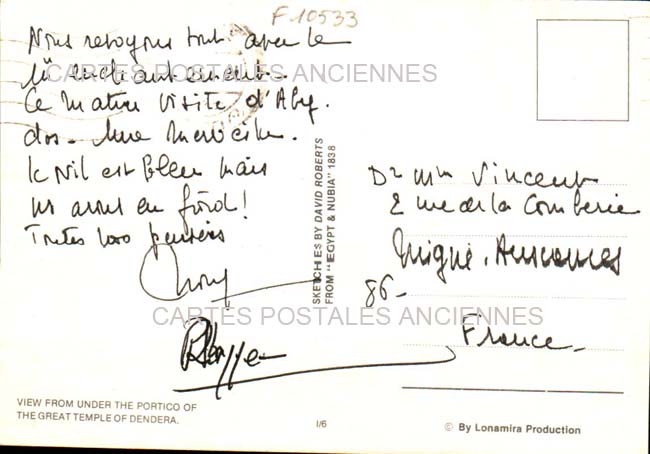 F 10533
Nous revoyons tout avec le
CARTES POSTALES ANCIENNES
Ce matin visite d'Aby-
dos. Une merveille.
le Nil est bleu mais
ns avons eu froid!
Toutes nos pensées
SKETCHES BY DAVID ROBERTS
FROM "EGYPT & NUBIA" 1838
Dr Mm Vincent
2 rue de la Comberie
Migné. Auxances
86-
France
CARTES POSTALES ANCIENNES
VIEW FROM UNDER THE PORTICO OF
THE GREAT TEMPLE OF DENDERA.
I/6
© By Lonamira Production